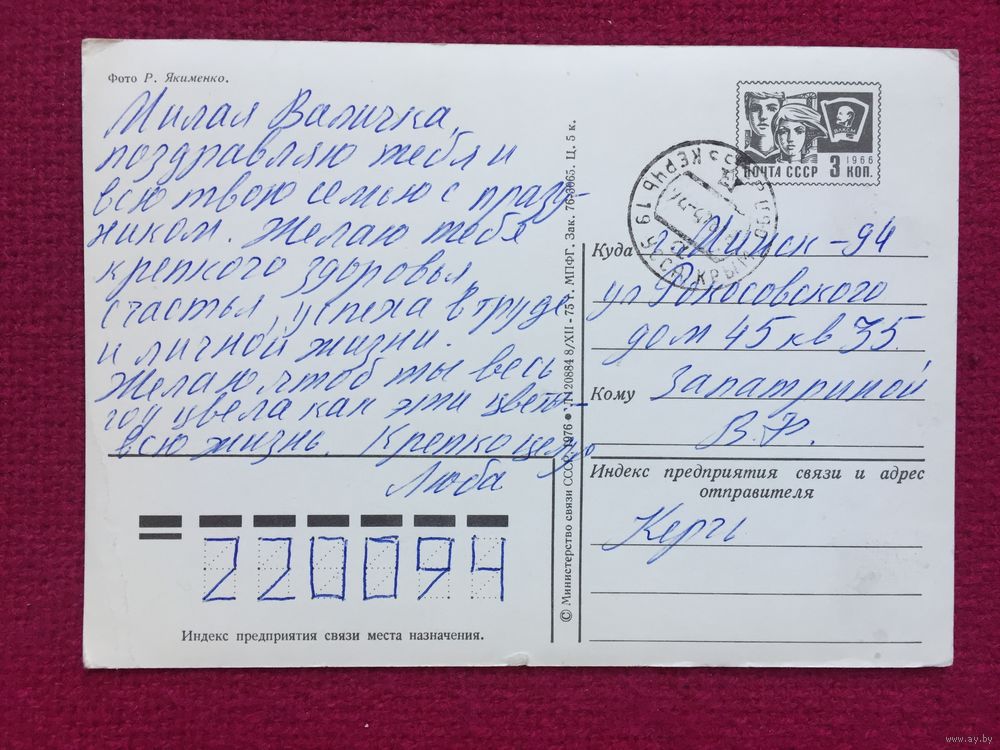 Фото Р. Якименко.
Милая Валичка,
поздравляю тебя и
всю твою семью с празд-
ником. Желаю тебе
крепкого здоровья
счастья, успеха в труде
и личной жизни.
Желаю чтоб ты весь
год цвела как эти цветы-
всю жизнь. Крепко целую
Люба
220094
Индекс предприятия связи места назначения.
© Министерство связи СССР. 1976 • 120884 8/XII - 75 г. МПФГ. Зак. 76-3065. Ц. 5 к.
ВЛКСМ
1966
ПОЧТА СССР 3 КОП.
КЕРЧЬ 19 УССР КРЫМ
Куда г. Минск-94
ул Рокосовского
дом 45 кв 35.
Кому Запатриной
В.Р.
Индекс предприятия связи и адрес
отправителя
Керчь
www.ay.by